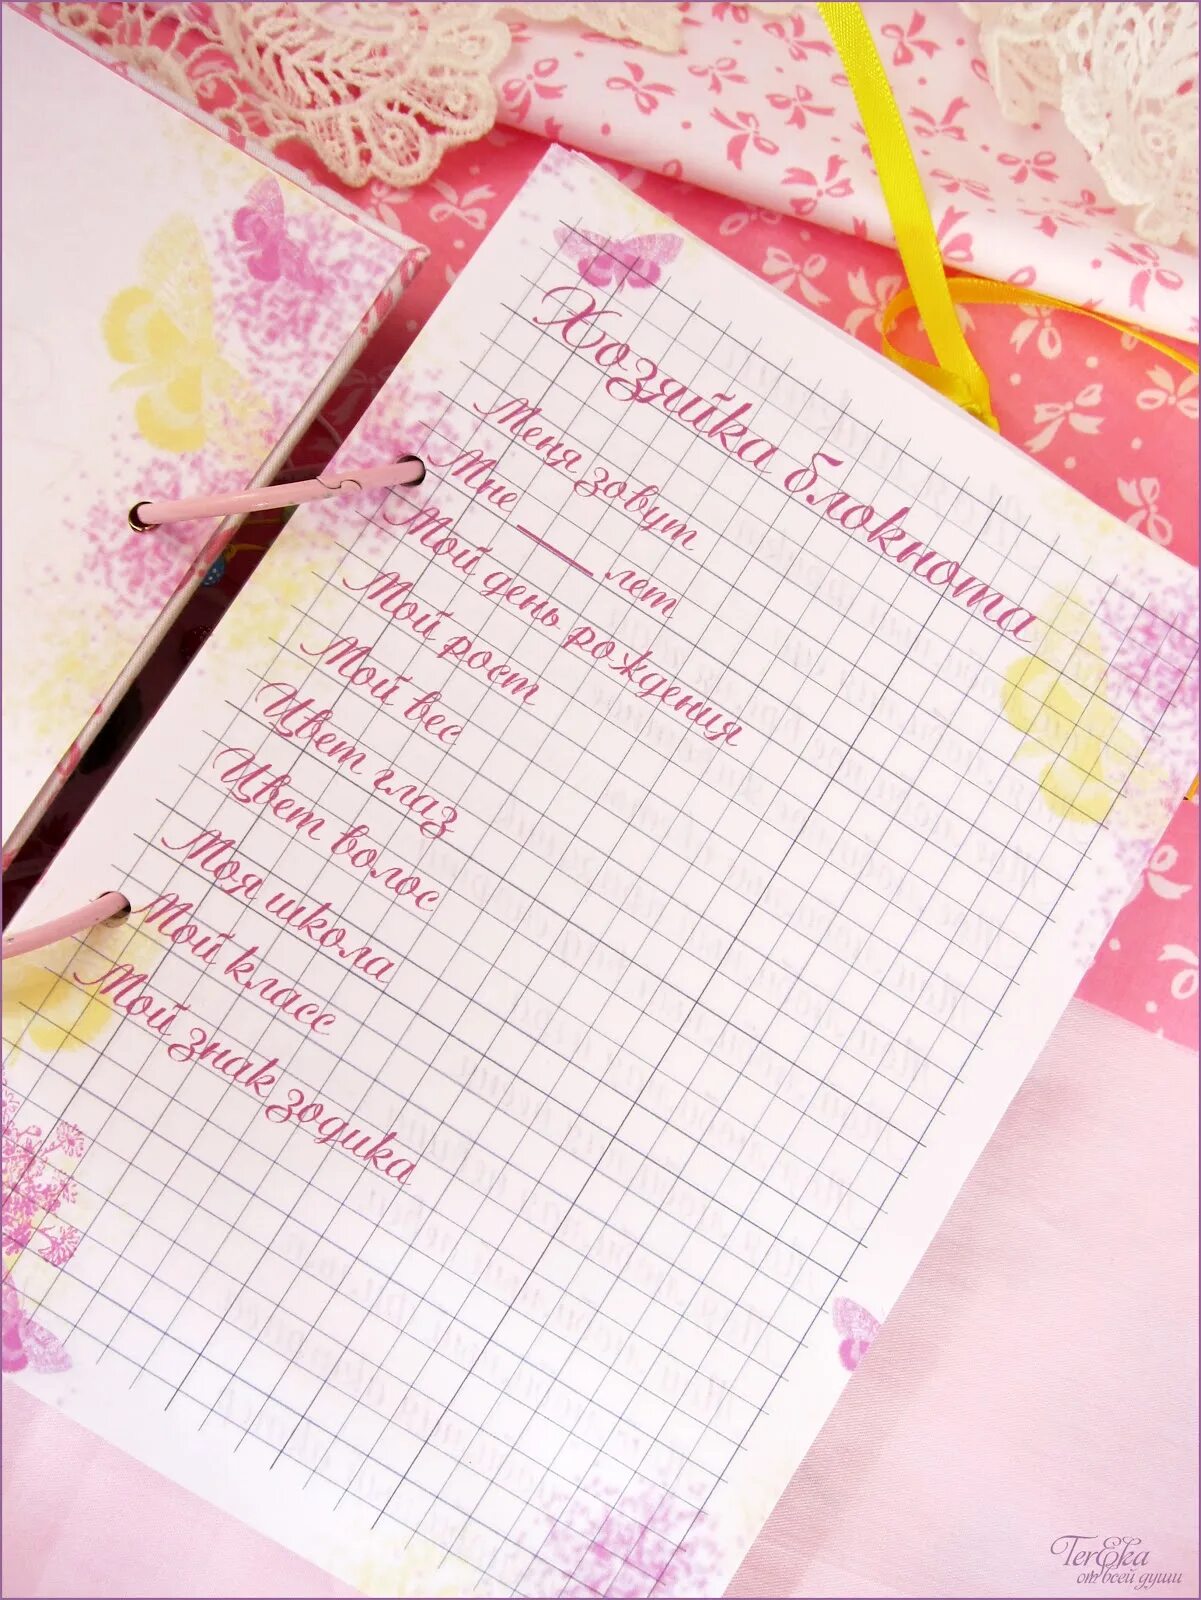 Хозяйка блокнота
Меня зовут
Мне ____ лет
Мой день рождения
Мой рост
Мой вес
Цвет глаз
Цвет волос
Моя школа
Мой класс
Мой знак зодиака
TerEka
от всей души